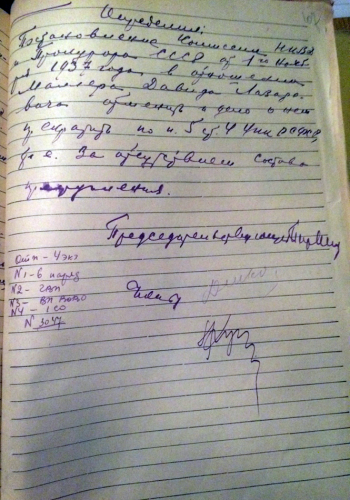 Определил:
Постановление Комиссии НКВД
и Прокурора СССР от 1го нояб
ря 1937 года в отношении
Маллера Давида Лазаре
вича отменить и дело о нем
прекратить по п. 5 ст. 4 УПК РСФСР,
т. е. за отсутствием состава
преступления.
Председательствующий
Отп - 4 экз
N1 - 6 наряд
N2 - ГВП
N3 - ВП
N4 - 1 со
N 3047
Члены